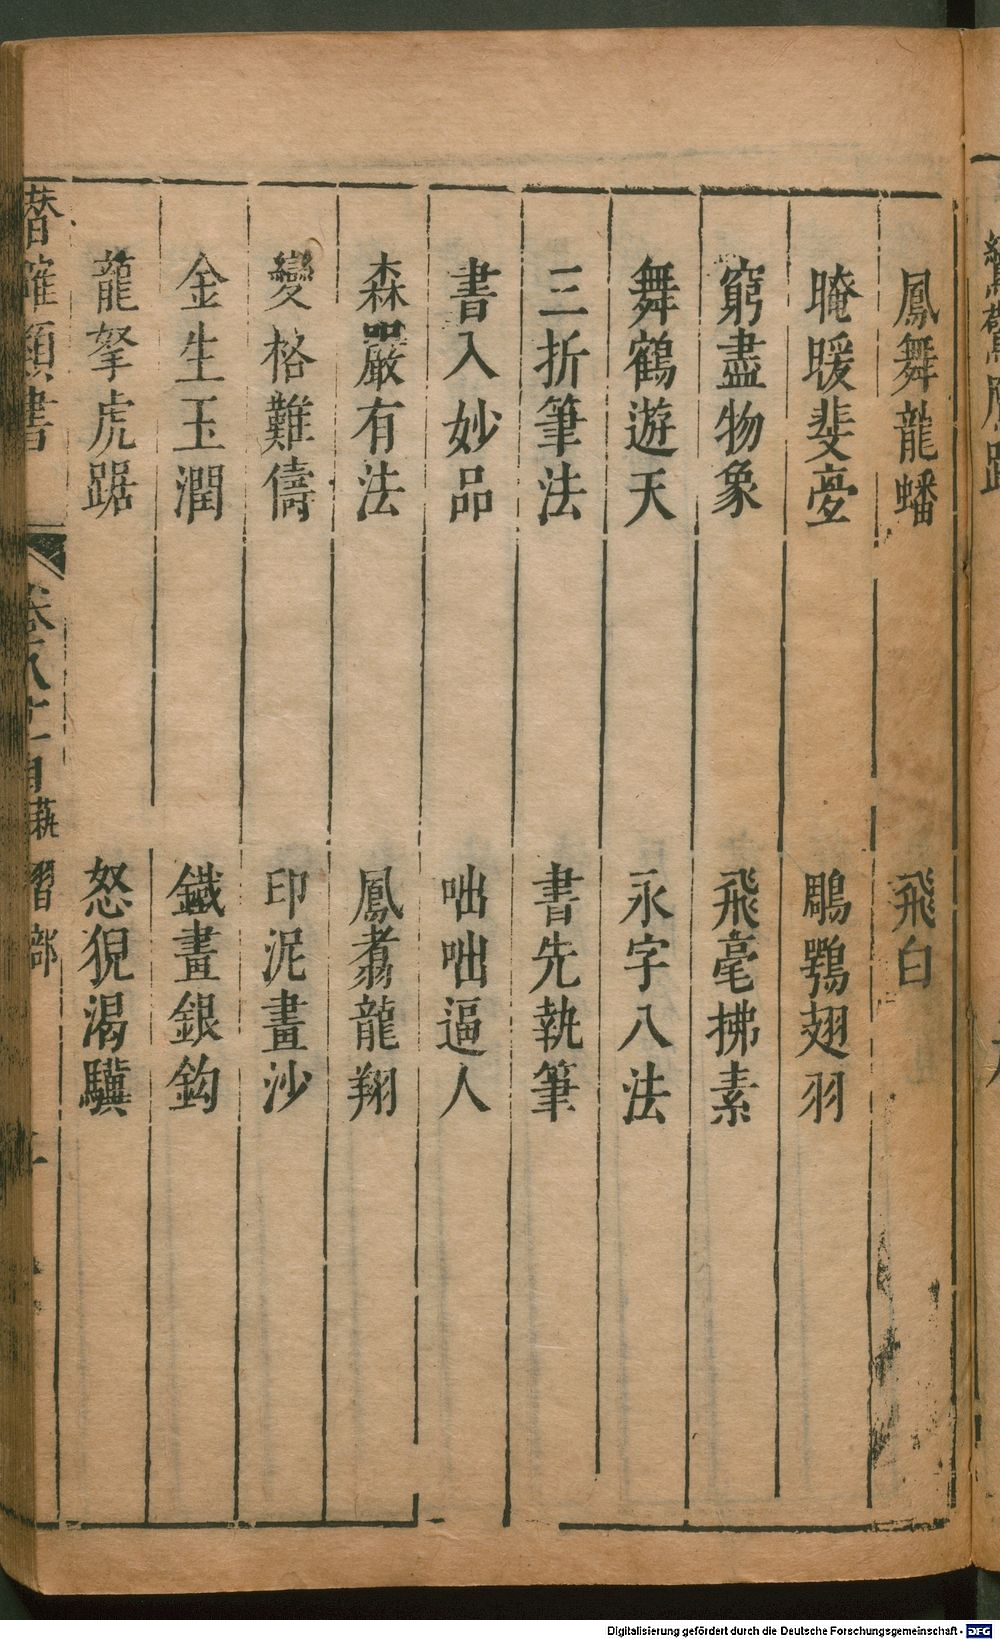 鳳舞龍蟠 飛白
晻暧斐亹 鵰鶚翅羽
窮盡物象 飛毫拂素
舞鶴遊天 永字八法
三折筆法 書先執筆
書入妙品 咄咄逼人
森嚴有法 鳳翥龍翔
變格難儔 印泥畫沙
金生玉潤 鐵畫銀鈎
龍拏虎踞 怒猊渴驥
潛確類書 卷八十 藝習部
Digitalisierung gefördert durch die Deutsche Forschungsgemeinschaft - DFG